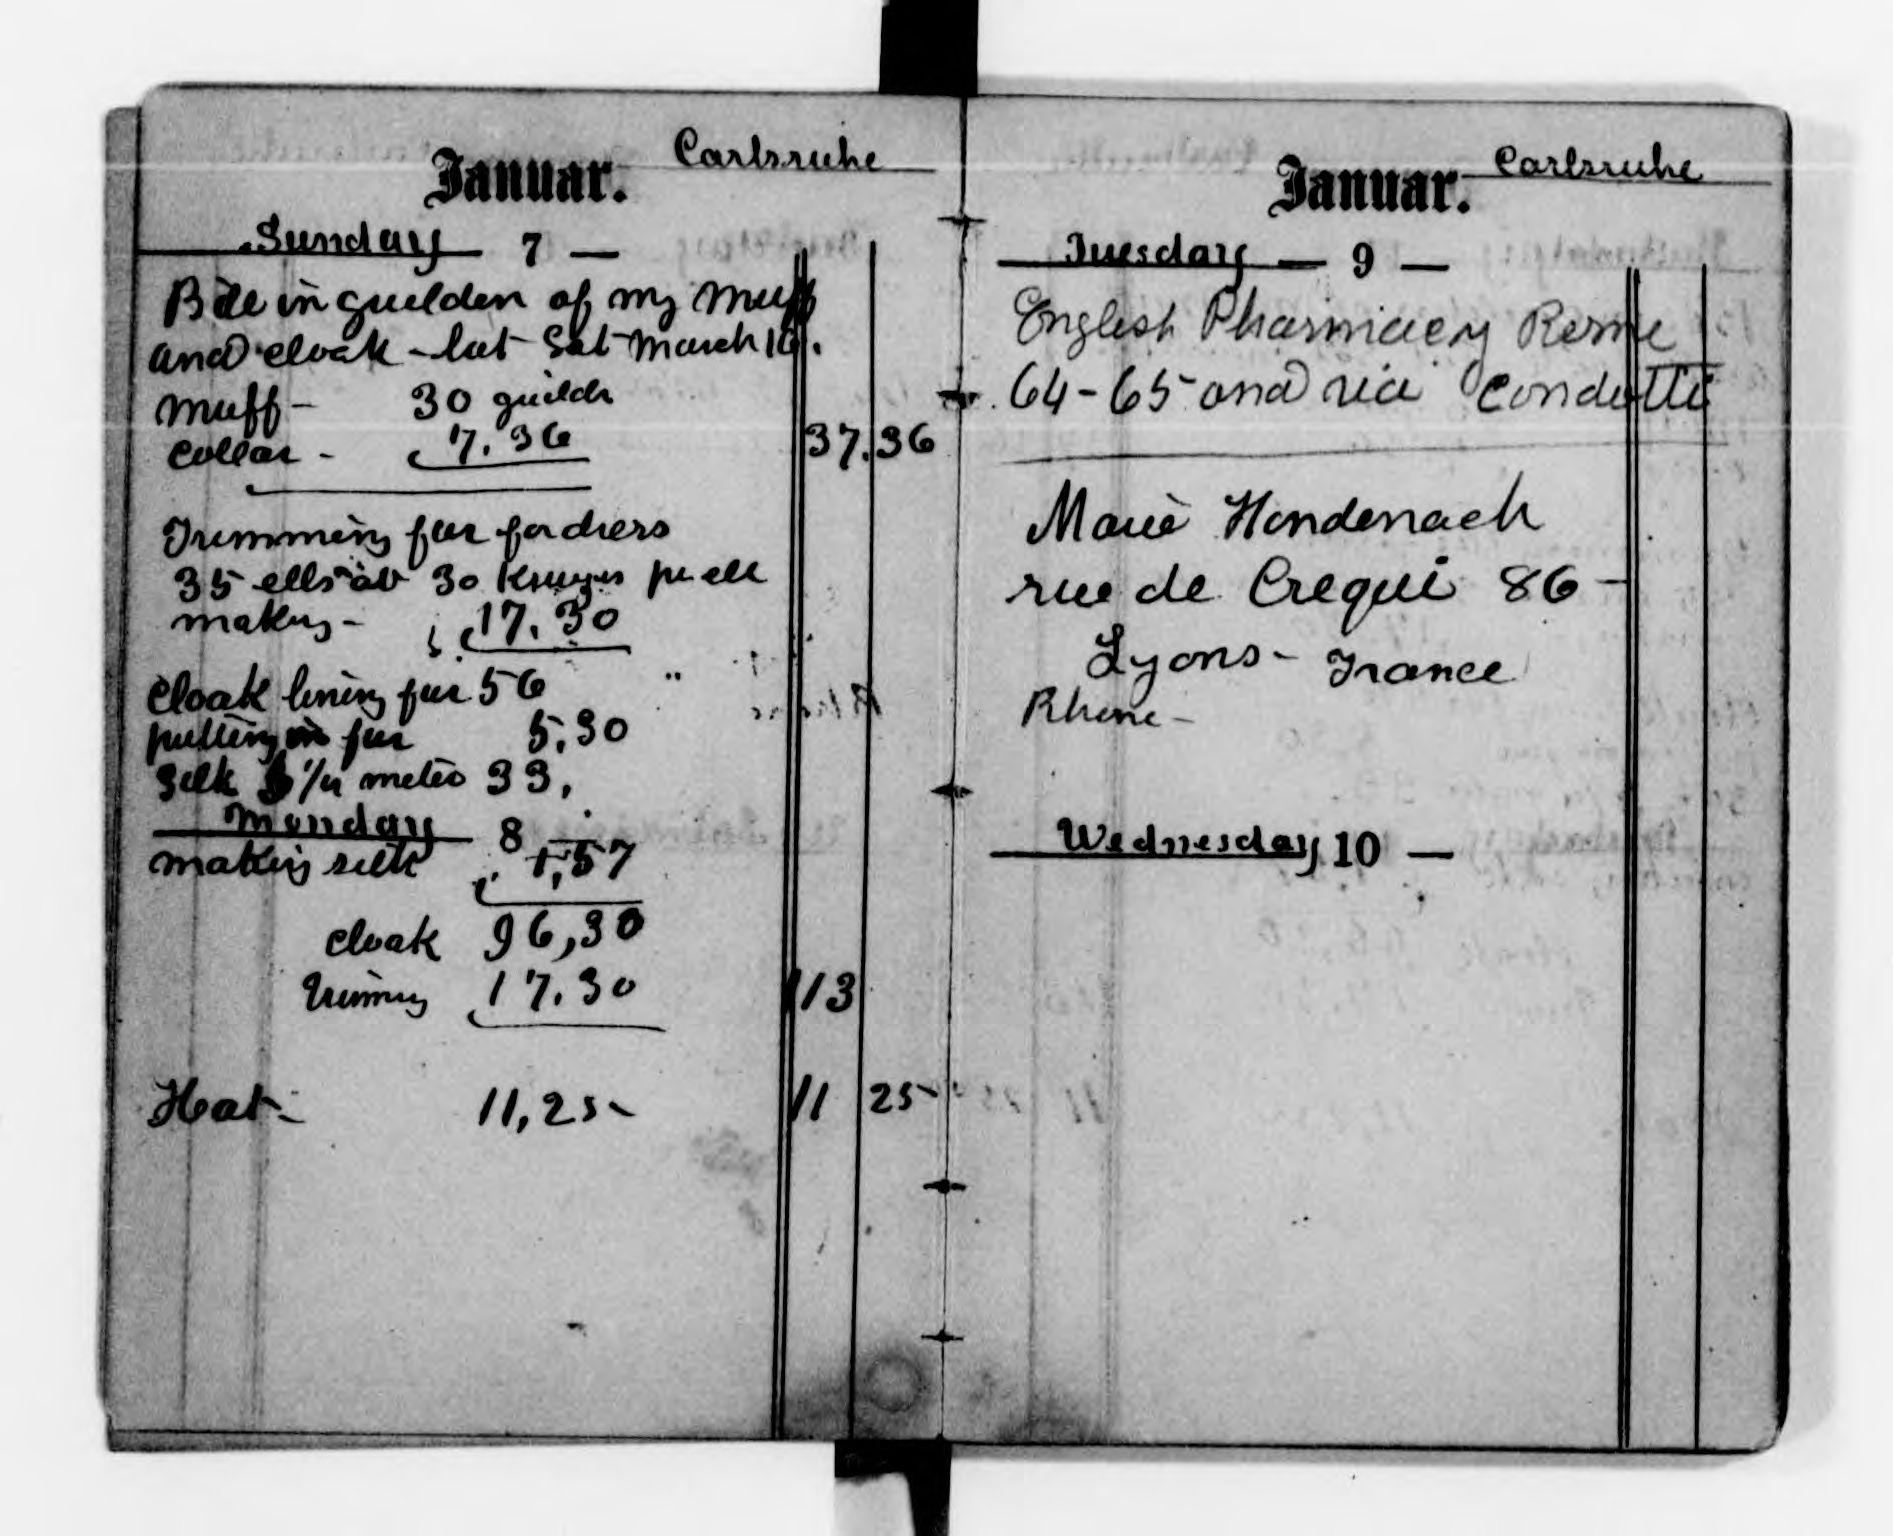 Januar. Carlsruhe
Sunday 7 —
Bill in guelden of my muff
and cloak - hat Sat March 16.
Muff - 30 guilds
collar - 7.36 37.36
Trimming fur for dress
35 ells at 30 per ell
making - 17.30
cloak lining fur 56 "
putting in fur 5,30
Silk 1/4 meter 33,
Monday 8 —
making silk 1,57
cloak 96,30
trimming 17.30 113
Hat - 11,25 11 25
Januar. Carlsruhe
Tuesday — 9 —
English Pharmacy Rome
64-65 and via Condotti
Marie Hondenach
rue de Crequi 86 -
Lyons - France
Rhone -
Wednesday 10 —